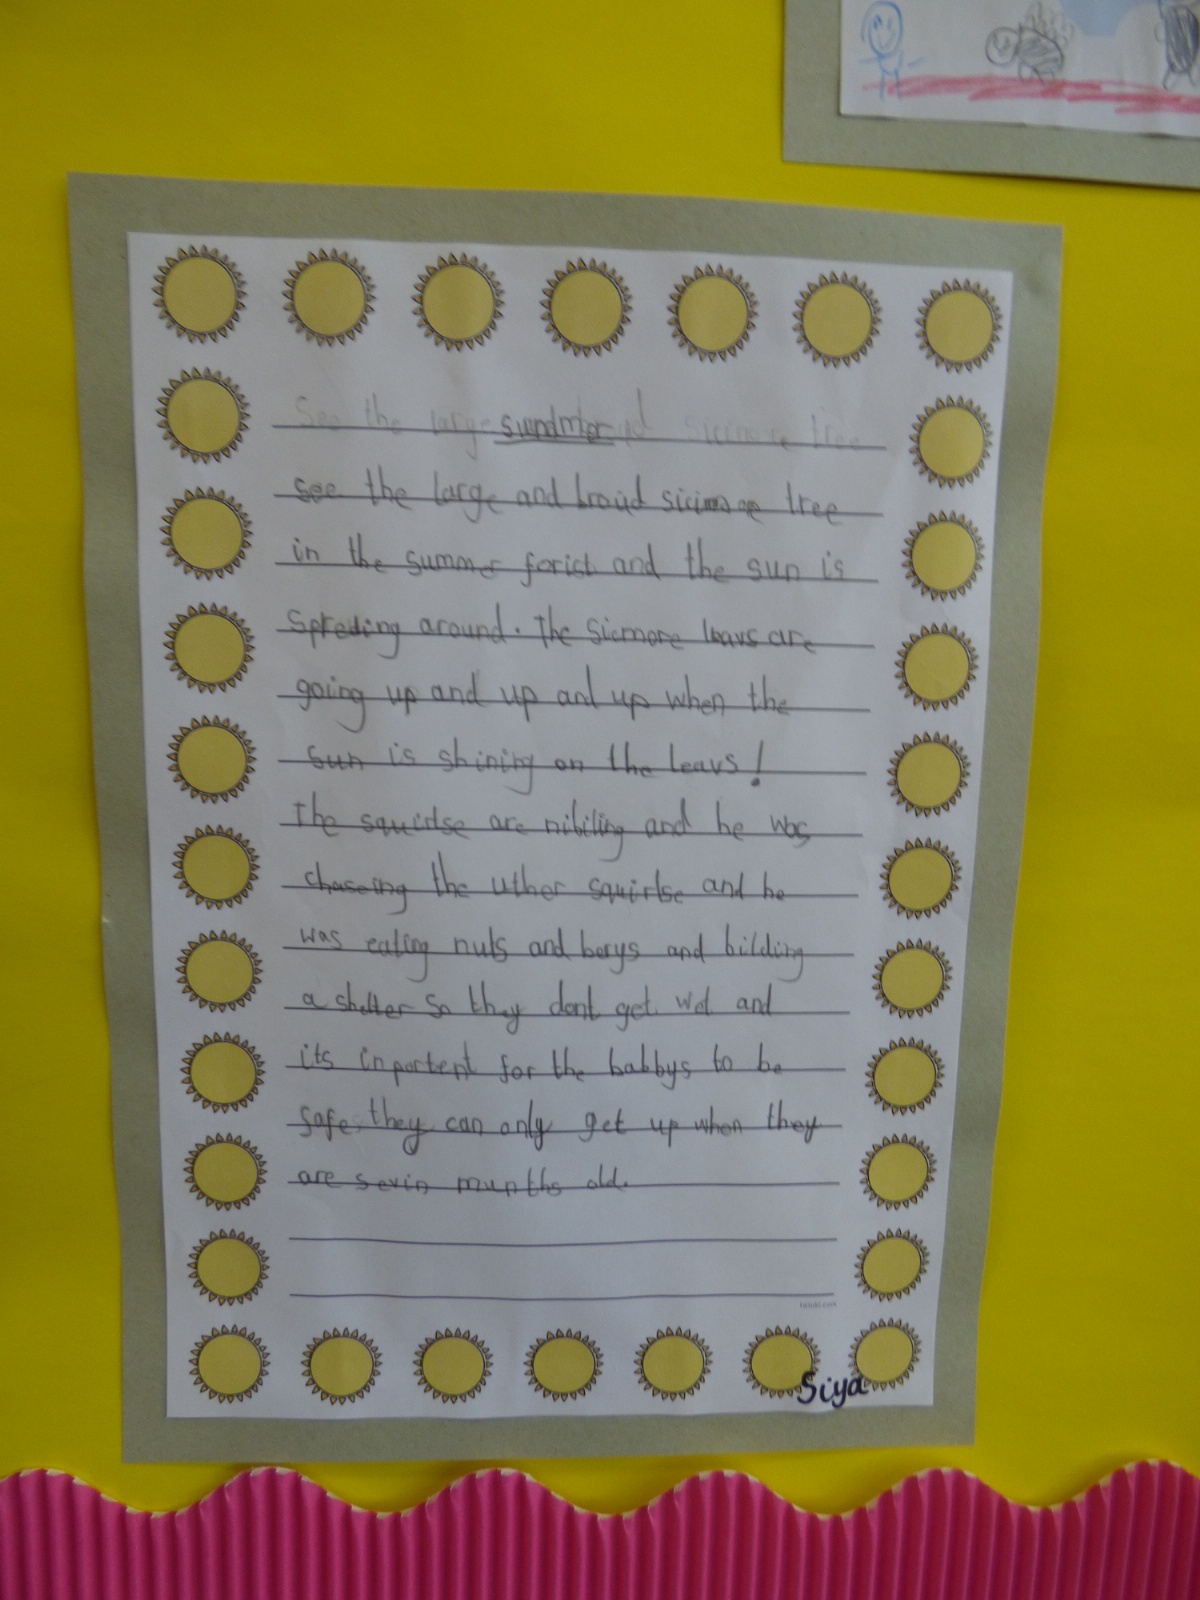 See the large summer sicmore tree
see the large and broud sicimore tree
in the summer forist and the sun is
spreding around. The sicmore leavs are
going up and up and up when the
sun is shining on the leavs!
The squirlse are nibiling and he was
chaseing the uther squirlse and he
was eating nuts and berys and bilding
a shelter so they dont get wet and
its inportent for the babbys to be
safe they can only get up when they
are sevin munths old.
Siya